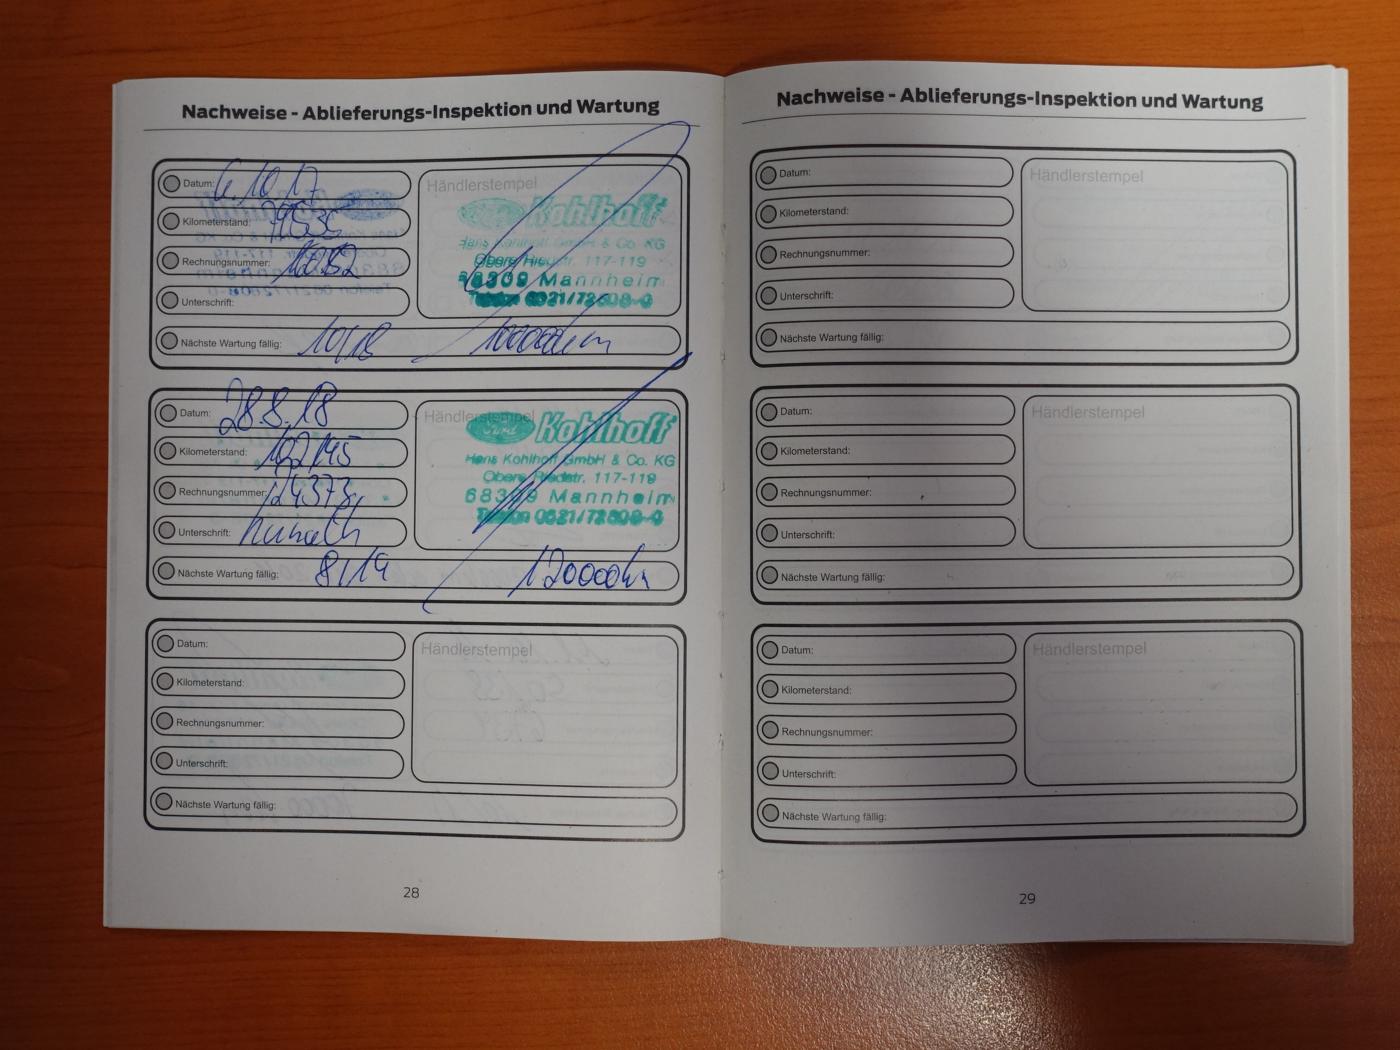 Nachweise - Ablieferungs-Inspektion und Wartung
Datum: 6.10.17
Kilometerstand: 79535
Rechnungsnummer:
Unterschrift:
Händlerstempel
Kohlhoff
Hans Kohlhoff GmbH & Co. KG
Obere Riedstr. 117-119
68309 Mannheim
Telefon 0621/72608-0
Nächste Wartung fällig: 10/18 100000km
Datum: 28.8.18
Kilometerstand: 102145
Rechnungsnummer: 124373
Unterschrift:
Händlerstempel
Ford Kohlhoff
Hans Kohlhoff GmbH & Co. KG
Obere Riedstr. 117-119
68309 Mannheim
Telefon 0621/72608-0
Nächste Wartung fällig: 8/19 120000km
Datum:
Kilometerstand:
Rechnungsnummer:
Unterschrift:
Händlerstempel
Nächste Wartung fällig:
28
Nachweise - Ablieferungs-Inspektion und Wartung
Datum:
Kilometerstand:
Rechnungsnummer:
Unterschrift:
Händlerstempel
Nächste Wartung fällig:
Datum:
Kilometerstand:
Rechnungsnummer:
Unterschrift:
Händlerstempel
Nächste Wartung fällig:
Datum:
Kilometerstand:
Rechnungsnummer:
Unterschrift:
Händlerstempel
Nächste Wartung fällig:
29